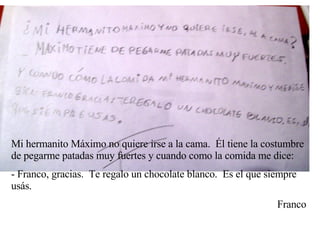 ¿MI HERMANITO MAXIMO Y NO QUIERE IRSE, AL A CAMA?
MAXIMO TIENE DE PEGARME PATADAS MUY FUERTES.
Y CUANDO CÓMO LA COMIDA MI HERMANITO MAXIMO Y ME DICE
FRANCO GRACIAS TE REGALO UN CHOCOLATE BLANCO, ES,
Mi hermanito Máximo no quiere irse a la cama. Él tiene la costumbre
de pegarme patadas muy fuertes y cuando como la comida me dice:
- Franco, gracias. Te regalo un chocolate blanco. Es el que siempre
usás.
Franco